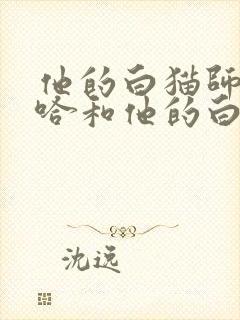 他的白猫師
咯和他的白
沈远